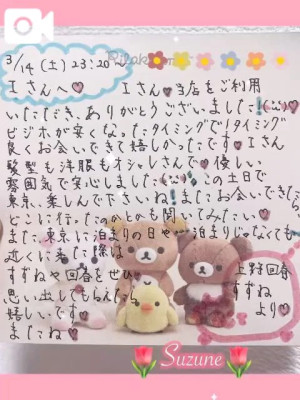 3/14 (土) 23:20〜
Rilakkuma
Iさんへ♡ Iさん♡当店をご利用
いただき、ありがとうございました!(^^)♡
ビジホが安くなったタイミングで!タイミング
良くお会いできて嬉しかったです♡Iさん
髪型も洋服もオシャレさんで♡優しい
雰囲気で安心しました(^^)♪この土日で
東京、楽しんで下さいね!またお会いできたら
どこに行ったのかとかも聞いてみたい♡
また、東京に泊まりの日や、泊まりじゃなくても
近くに来た際は
すずねや回春をぜひ
思い出してもらえたら
嬉しいです♡
またね♡
上野回春
すずね
より♡
Suzune